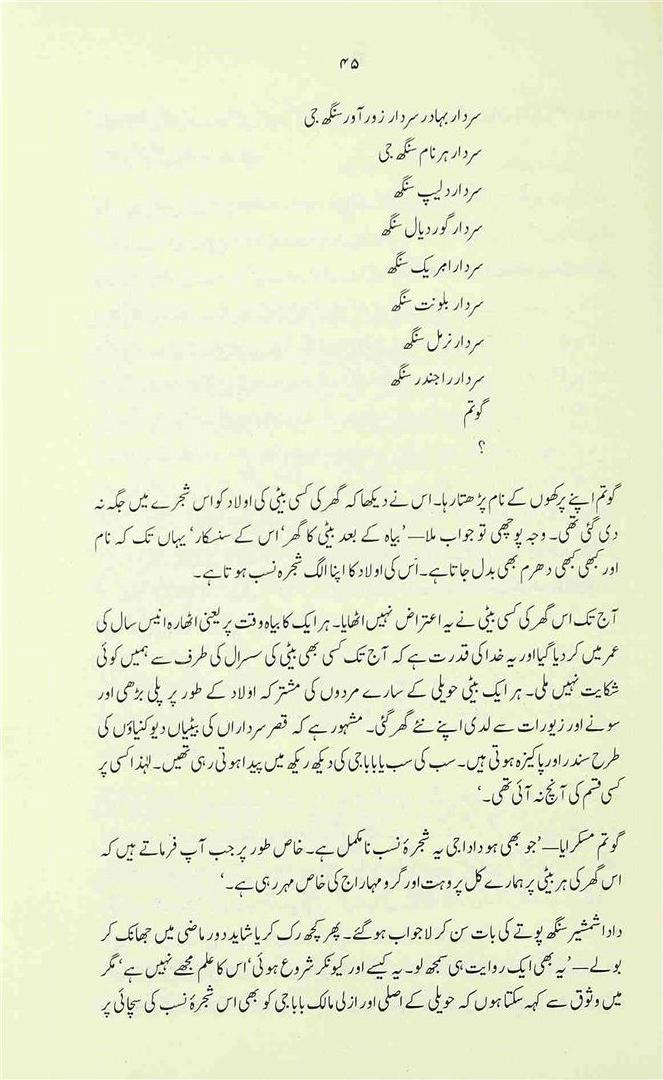 ۴۵
سردار بہادر سردار زور آور سنگھ جی
سردار ہر نام سنگھ جی
سردار دلیپ سنگھ
سردار گوردیال سنگھ
سردار امریک سنگھ
سردار بلونت سنگھ
سردار نرمل سنگھ
سردار راجندر سنگھ
گوتم
؟
گوتم اپنے پرکھوں کے نام پڑھتا رہا۔ اس نے دیکھا کہ گھر کی کسی بیٹی کی اولاد کو اس شجرے میں جگہ نہ
دی گئی تھی۔ وجہ پوچھی تو جواب ملا—’بیاہ کے بعد بیٹی کا گھر‘ اس کے سنسکار‘ یہاں تک کہ نام
اور کبھی کبھی دھرم بھی بدل جاتا ہے۔ اُس کی اولاد کا اپنا الگ شجرہ نسب ہوتا ہے۔
آج تک اس گھر کی کسی بیٹی نے یہ اعتراض نہیں اٹھایا۔ ہر ایک کا بیاہ وقت پر یعنی اٹھارہ انیس سال کی
عمر میں کر دیا گیا اور یہ خدا کی قدرت ہے کہ آج تک کسی بھی بیٹی کی سسرال کی طرف سے ہمیں کوئی
شکایت نہیں ملی۔ ہر ایک بیٹی حویلی کے سارے مردوں کی مشترکہ اولاد کے طور پر پلی بڑھی اور
سونے اور زیورات سے لدی اپنے نئے گھر گئی۔ مشہور ہے کہ قصر سرداراں کی بیٹیاں دیو کنیاؤں کی
طرح سندر اور پاکیزہ ہوتی ہیں۔ سب کی سب یا بابا جی کی دیکھ ریکھ میں پیدا ہوتی رہی تھیں۔ لہٰذا کسی پر
کسی قسم کی آنچ نہ آئی تھی۔‘
گوتم مسکرایا—’جو بھی ہو دادا جی یہ شجرۂ نسب نامکمل ہے۔ خاص طور پر جب آپ فرماتے ہیں کہ
اس گھر کی ہر بیٹی پر ہمارے کل پروہت اور گرو مہاراج کی خاص مہر رہی ہے۔‘
دادا شمشیر سنگھ پوتے کی بات سن کر لاجواب ہو گئے۔ پھر کچھ رک کر یا شاید دور ماضی میں جھانک کر
بولے—’یہ بھی ایک روایت ہی سمجھ لو۔ یہ کیسے اور کیونکر شروع ہوئی‘ اس کا علم مجھے نہیں ہے‘ مگر
میں وثوق سے کہہ سکتا ہوں کہ حویلی کے اصلی اور ازلی مالک بابا جی کو بھی اس شجرۂ نسب کی سچائی پر